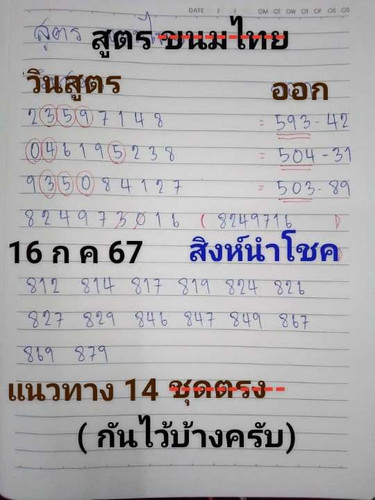 DATE
สูตร สูตร ขนมไทย
วินสูตร ออก
2 3 5 9 7 1 4 8 = 593-42
0 4 6 1 9 5 2 3 8 = 504-31
9 3 5 0 8 4 1 2 7 = 503-89
8 2 4 9 7 3 0 1 6 ( 8249716 )
16 ก ค 67 สิงห์นำโชค
812 814 817 819 824 826
827 829 846 847 849 867
869 879
แนวทาง 14 ชุดตรง
( กันไว้บ้างครับ)